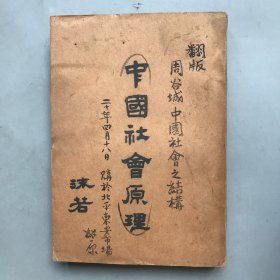 翻版
周谷城中國社會之結構
中國社會原理
二十年四月十八日 購於北平東安市場
沫若